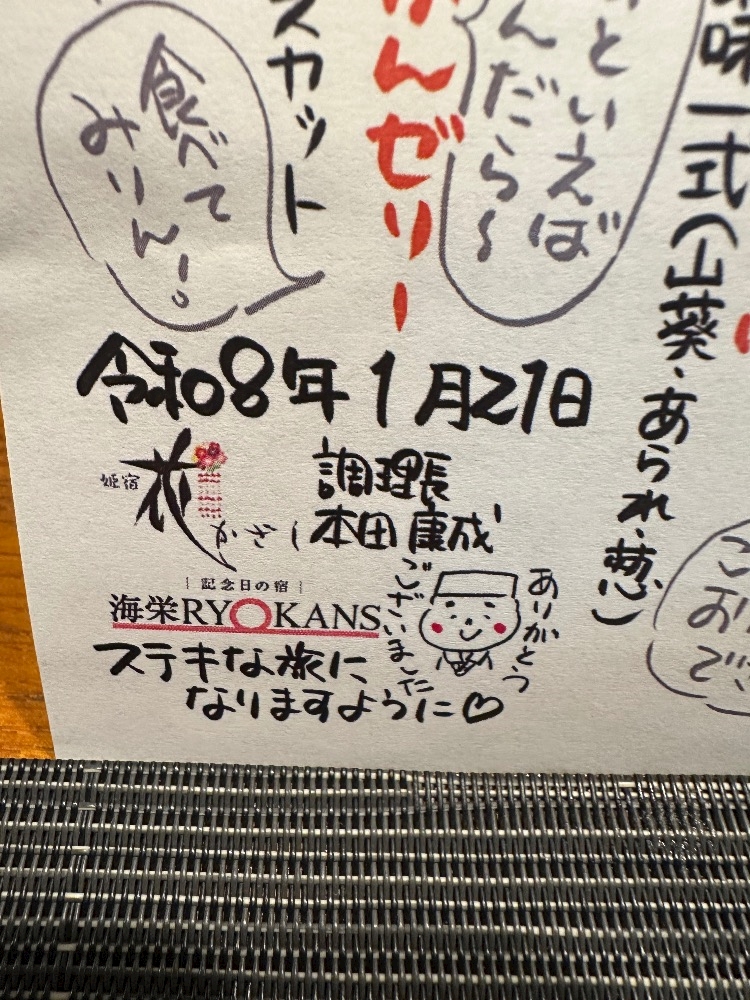 味一式(山葵、あられ、葱)
といえば
んだら〜
んゼリー
スカット
食べて
みりん!。
令和8年1月21日
姫宿 花かざし
調理長
本田 康成
記念日の宿
海栄RYOKANS
ありがとう
ございました
ステキな旅に
なりますように♡